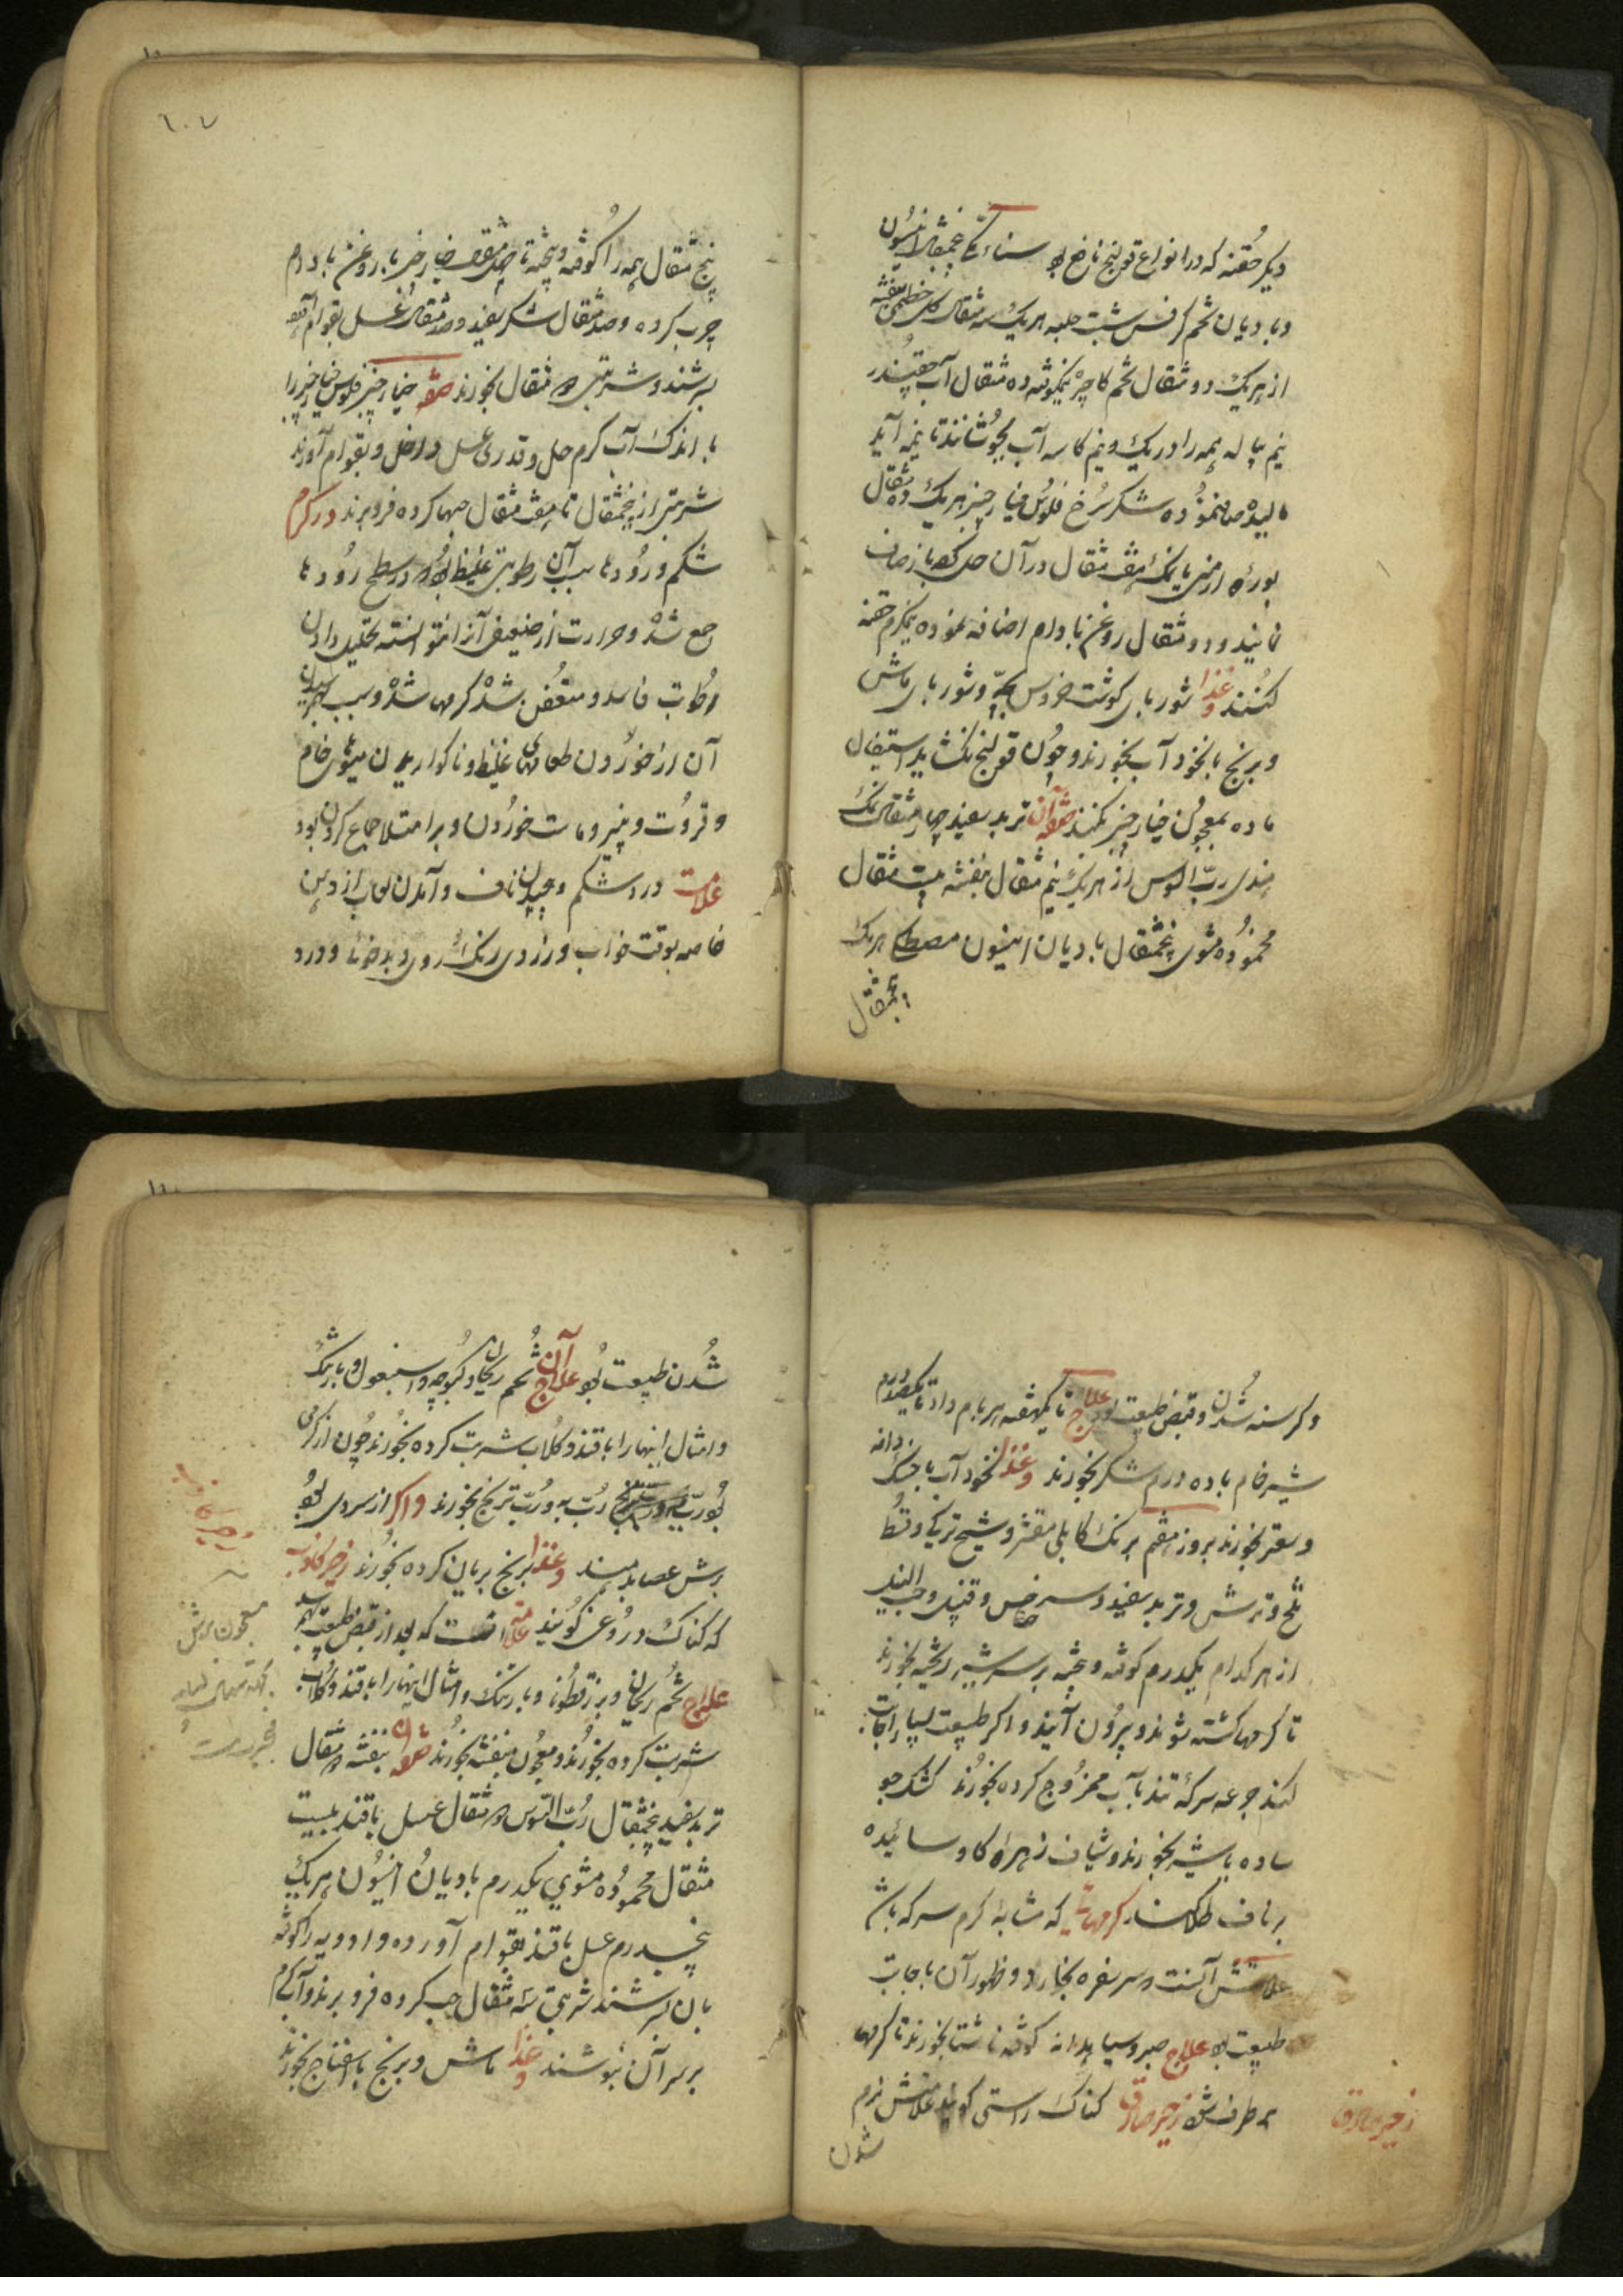 دیگر حقنه که در انواع قولنج نافع بود سناء مکی پنجمثقال انیسون
و بادیان تخم کرفس شبت حلبه هر یک سه مثقال گل خطمی بنفشه
از هر یک دو مثقال تخم کاجره نیمکوفته ده مثقال آب چقندر
نیم پیاله همه را در یک و نیم کاسه آب بجوشانند تا بنیمه آید
مالیده صاف نموده شکر سرخ فلوس خیار چنبر هر یک ده مثقال
بوره ارمنی یا نمک هفت مثقال در آن حل کرده باز صاف
نمایند و دو مثقال روغن بادام اضافه نموده نیمگرم حقنه
کنند و غذا شوربای گوشت خروس بچه و شوربای ماش
و برنج با نخود آب بخورند و چون قولنج بکشاید استیصال
ماده بمعجون خیار چنبر بکنند صفة آن تربد سفید چهار مثقال نمک
هندی رب السوس از هر یک نیم مثقال بنفشه بیست مثقال
محموده مشوی پنجمثقال بادیان انیسون مصطکی هر یک
پنجمثقال
٦٠٧
پنج مثقال همه را کوفته و بیخته تا صد مثقال خیار چنبر با روغن بادام
چرب کرده و صد مثقال شکر سفید و صد مثقال عسل بقوام آورده
بسرشند و شربتی ده مثقال بخورند صفة خیار چنبر فلوس خیار چنبر را
با اندک آب گرم حل و قدری عسل داخل و بقوام آورند
شربتی از پنجمثقال تا هفت مثقال حبها کرده فرو برند در کرم
شکم و رودها سبب آن رطوبتی غلیظ بود در سطح رودها
جمع شده و حرارت از ضعیفی آنرا نتوانسته تحلیل دادن
رطوبات فاسد و متعفن شده کرمها شده و سبب بهم رسیدن
آن از خوردن طعامهای غلیظ و ناگوار چون میوهای خام
و قروت و پنیر و ماست خوردن و بر امتلا جماع کردن بود
علامت درد شکم و پیچیدن ناف و آمدن لعاب از دهن
خاصه بوقت خواب و زردی رنگ روی و بدخوئی و درد
و گرسنه شدن و قبض طبیعت بود علاج تا یکهفته هر بامداد تا یکصد درم
شیر خام با ده درم شکر بخورند و غذا نخود آب با خسک دانه
و سعتر بخورند بروز هفتم برنگ کابلی مقشر و شیح ترکی و قسط
تلخ و ترمس و تربد سفید و سرخس و قنبیل و حب النیل
از هر کدام یکدرم کوفته و بیخته بر سر شیر ریخته بخورند
تا کرمها کشته شوند و بیرون آیند و اگر طبیعت بسیار اجابت
کند جرعه سرکه تند بآب ممزوج کرده بخورند کشک جو
ساده یا شیر بخورند و شیاف زهره گاو سائیده
بر ناف طلا کنند کرمهائی که مشابه کرم سرکه باشد
علامتش آنست که سر سفره بخارد و ظهور آن با اجابت
طبیعت بود علاج صبر و سیاهدانه کوفته ناشتا بخورند تا کرمها
برطرف شود زحیر صادق کناک راستی گویند علامتش نرم
زحیر صادق
شدن
شدن طبیعت بود علاج آن تخم ریحان و کنوچه و اسبغول و بارتنگ
و امثال اینها را با قند و گلاب شربت کرده بخورند چون از گرمی
بود رب به و رب ترنج بخورند و اگر از سردی بود
برش عصا بدهند و غذا برنج بریان کرده بخورند زحیر کاذب
که کناک دروغی گویند علامتش آنست که بعد از قبض طبیعت بهم رسد
علاج تخم ریحان و بزرقطونا و بارتنگ و امثال اینها را با قند و گلاب
شربت کرده بخورند و معجون بنفشه بخورند صفة آن بنفشه ده مثقال
تربد سفید پنجمثقال رب السوس ده مثقال عسل یا قند بیست
مثقال محموده مشوی یکدرم بادیان انیسون هر یک
پنجدرم عسل یا قند بقوام آورده و ادویه را کوفته
بآن بسرشند شربتی سه مثقال حب کرده فرو برند و آب گرم
بر سر آن بنوشند و غذا ماش و برنج با اسفناج بخورند
معجون برش